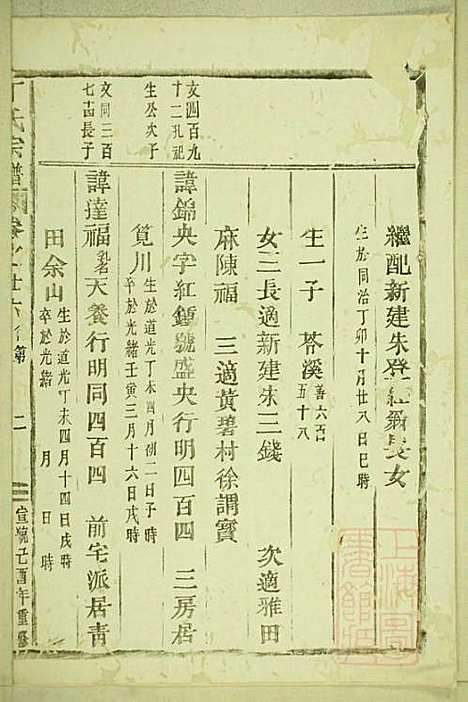 繼配新建朱登紅翁長女
生於同治丁卯十月廿八日巳時
生一子 苓溪 善六百
五十八
女二長適新建朱三錢 次適雅田
麻陳福 三適黃碧村徐謂寶
文四百九
十二孔祀
生公次子
諱錦央字紅鍾號盛央行明四百四 三房居
筧川 生於道光丁未四月初二日子時
卒於光緒壬寅三月十六日戌時
文同三百
七古長子
諱達福 乳名 天養行明同四百四 前宅派居青
田余山 生於道光丁未四月十四日戌時
卒於光緒 月 日 時
丁氏宗譜 卷之廿六 第 二 宣統己酉年重修
上海圖書館藏